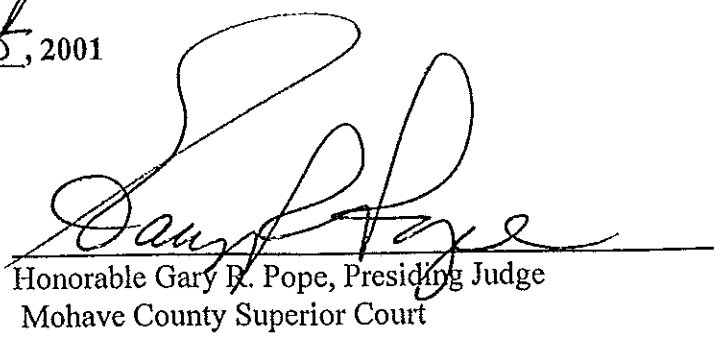 5, 2001
Gary R Pope
Honorable Gary R. Pope, Presiding Judge
Mohave County Superior Court